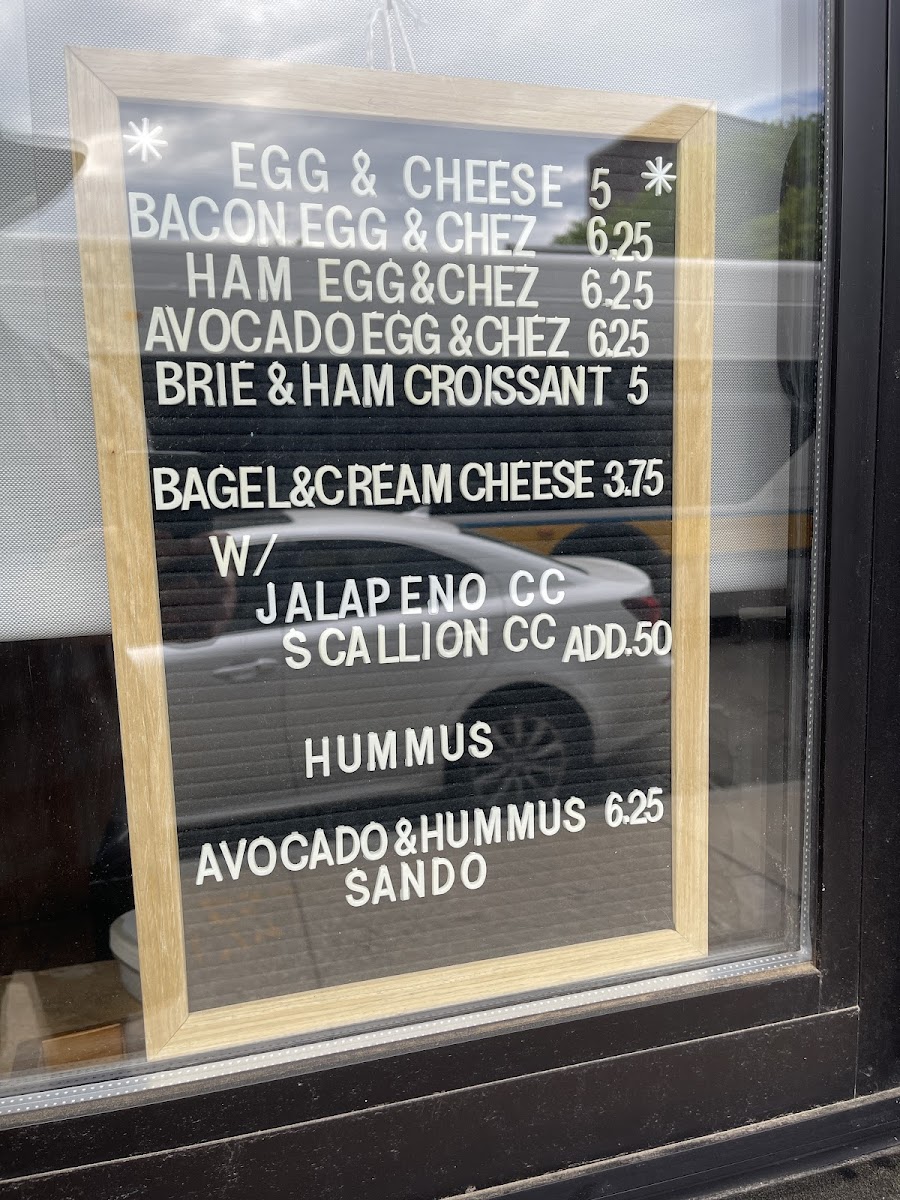 * EGG & CHEESE 5 *
BACON EGG & CHEZ 6.25
HAM EGG&CHEZ 6.25
AVOCADO EGG & CHEZ 6.25
BRIE & HAM CROISSANT 5
BAGEL&CREAM CHEESE 3.75
W/
JALAPENO CC
SCALLION CC ADD.50
HUMMUS
AVOCADO&HUMMUS 6.25
SANDO